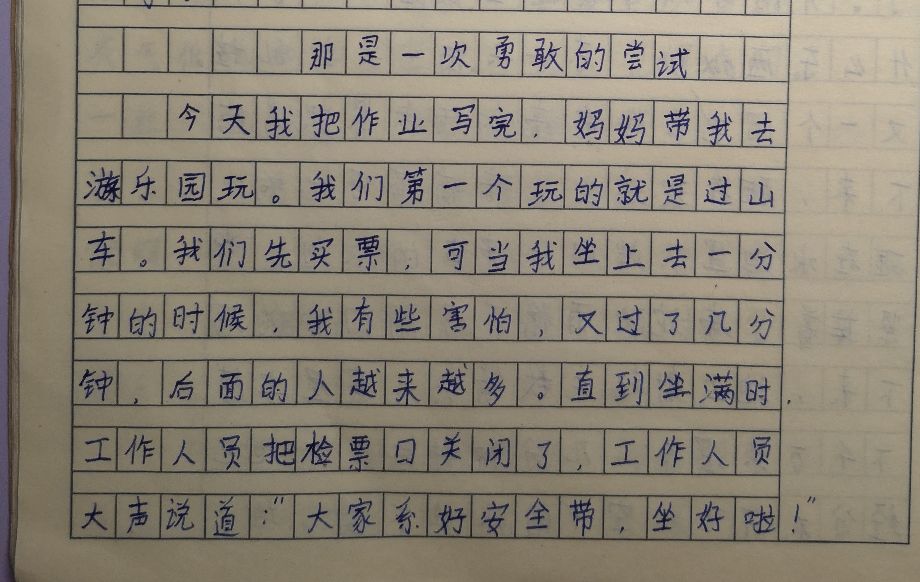 那是一次勇敢的尝试
今天我把作业写完，妈妈带我去
游乐园玩。我们第一个玩的就是过山
车。我们先买票，可当我坐上去一分
钟的时候，我有些害怕，又过了几分
钟，后面的人越来越多。直到坐满时，
工作人员把检票口关闭了，工作人员
大声说道：“大家系好安全带，坐好啦！”